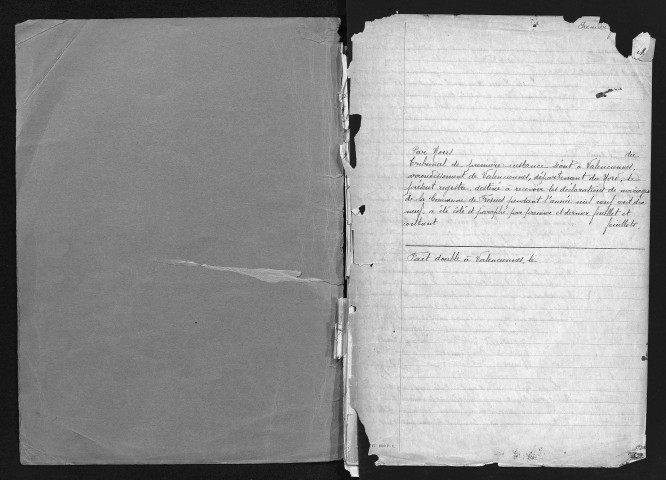 Premier
Par Nous du
Tribunal de première instance séant à Valenciennes,
arrondissement de Valenciennes, département du Nord, le
présent registre, destiné à recevoir les déclarations de mariages
de la Commune de Fresnes pendant l'année mil neuf cent dix
neuf, a été coté et paraphé par premier et dernier feuillet et
contient feuillets.
Fait double à Valenciennes, le